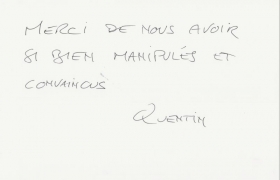 MERCI DE NOUS AVOIR
SI BIEN MANIPULÉS ET
CONVAINCUS
QUENTIN